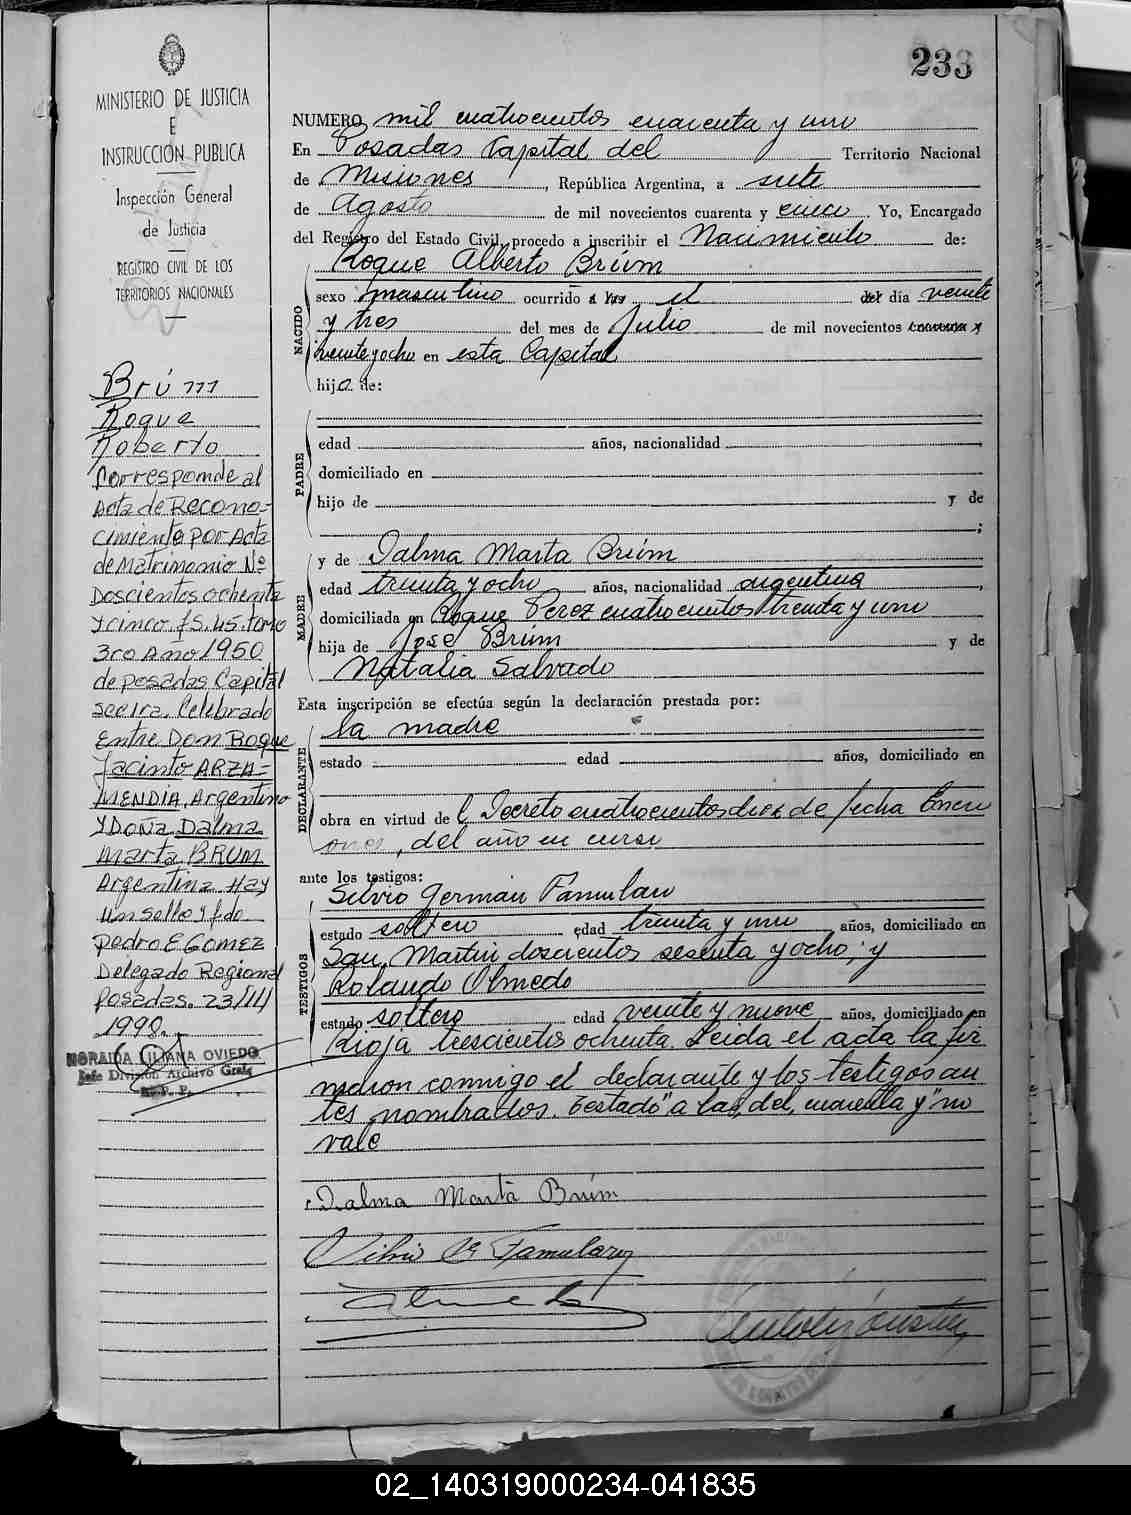 233
MINISTERIO DE JUSTICIA
E
INSTRUCCIÓN PUBLICA
Inspección General
de Justicia
REGISTRO CIVIL DE LOS
TERRITORIOS NACIONALES
Brúm
Roque
Roberto
Corresponde al
Acta de Recono-
cimiento por Acta
de Matrimonio Nº
Doscientos ochenta
y cinco. fs. 45. tomo
3ro Año 1950
de posadas Capital
secira. Celebrado
Entre Don Roque
Jacinto ARZA-
MENDIA, Argentino
y DOÑA Dalma
Marta BRUM
Argentina. Hay
un sello y fdo
pedro E GOMEZ
Delegado Regional
posadas. 23/III/
1998.
NORAIDA LILIANA OVIEDO
Jefe División Archivo Gral.
R. P. P.
NUMERO mil cuatrocientos cuarenta y uno
En Posadas Capital del Territorio Nacional
de Misiones, República Argentina, a siete
de Agosto de mil novecientos cuarenta y cinco. Yo, Encargado
del Registro del Estado Civil, procedo a inscribir el Nacimiento de:
NACIDO
Roque Alberto Brúm
sexo masculino ocurrido a las el del día veinte
y tres del mes de Julio de mil novecientos cuarenta y
veinte y ocho en esta Capital
hijo de:
PADRE
edad años, nacionalidad
domiciliado en
hijo de y de
;
MADRE
y de Dalma Marta Brúm
edad treinta y ocho años, nacionalidad argentina,
domiciliada en Roque Perez cuatrocientos treinta y uno
hija de José Brúm y de
Natalia Salvado
Esta inscripción se efectúa según la declaración prestada por:
DECLARANTE
la madre
estado edad años, domiciliado en
obra en virtud del Decreto cuatrocientos diez de fecha Enero
once, del año en curso
ante los testigos:
TESTIGOS
Silvio German Famulari
estado soltero edad treinta y uno años, domiciliado en
San Martin doscientos sesenta y ocho; y
Rolando Olmedo
estado soltero edad veinte y nueve años, domiciliado en
Rioja trescientos ochenta. Leida el acta la fir
maron conmigo el declarante y los testigos an
tes nombrados. Testado "a las, del, cuarenta y" no
vale
Dalma Marta Brúm
Silvio G Famulary
02_140319000234-041835